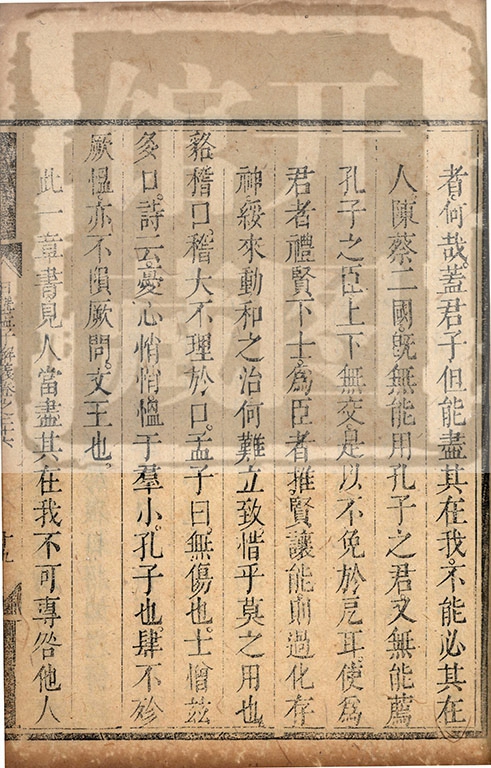 者何哉蓋君子但能盡其在我不能必其在
人陳蔡二國既無能用孔子之君又無能薦
孔子之臣上下無交是以不免於戹耳使為
君者禮賢下士為臣者推賢讓能則過化存
神綏來動和之治何難立致惜乎莫之用也
貉稽曰稽大不理於口孟子曰無傷也士憎茲
多口詩云憂心悄悄慍于羣小孔子也肆不殄
厥慍亦不隕厥問文王也
此一章書見人當盡其在我不可專咎他人